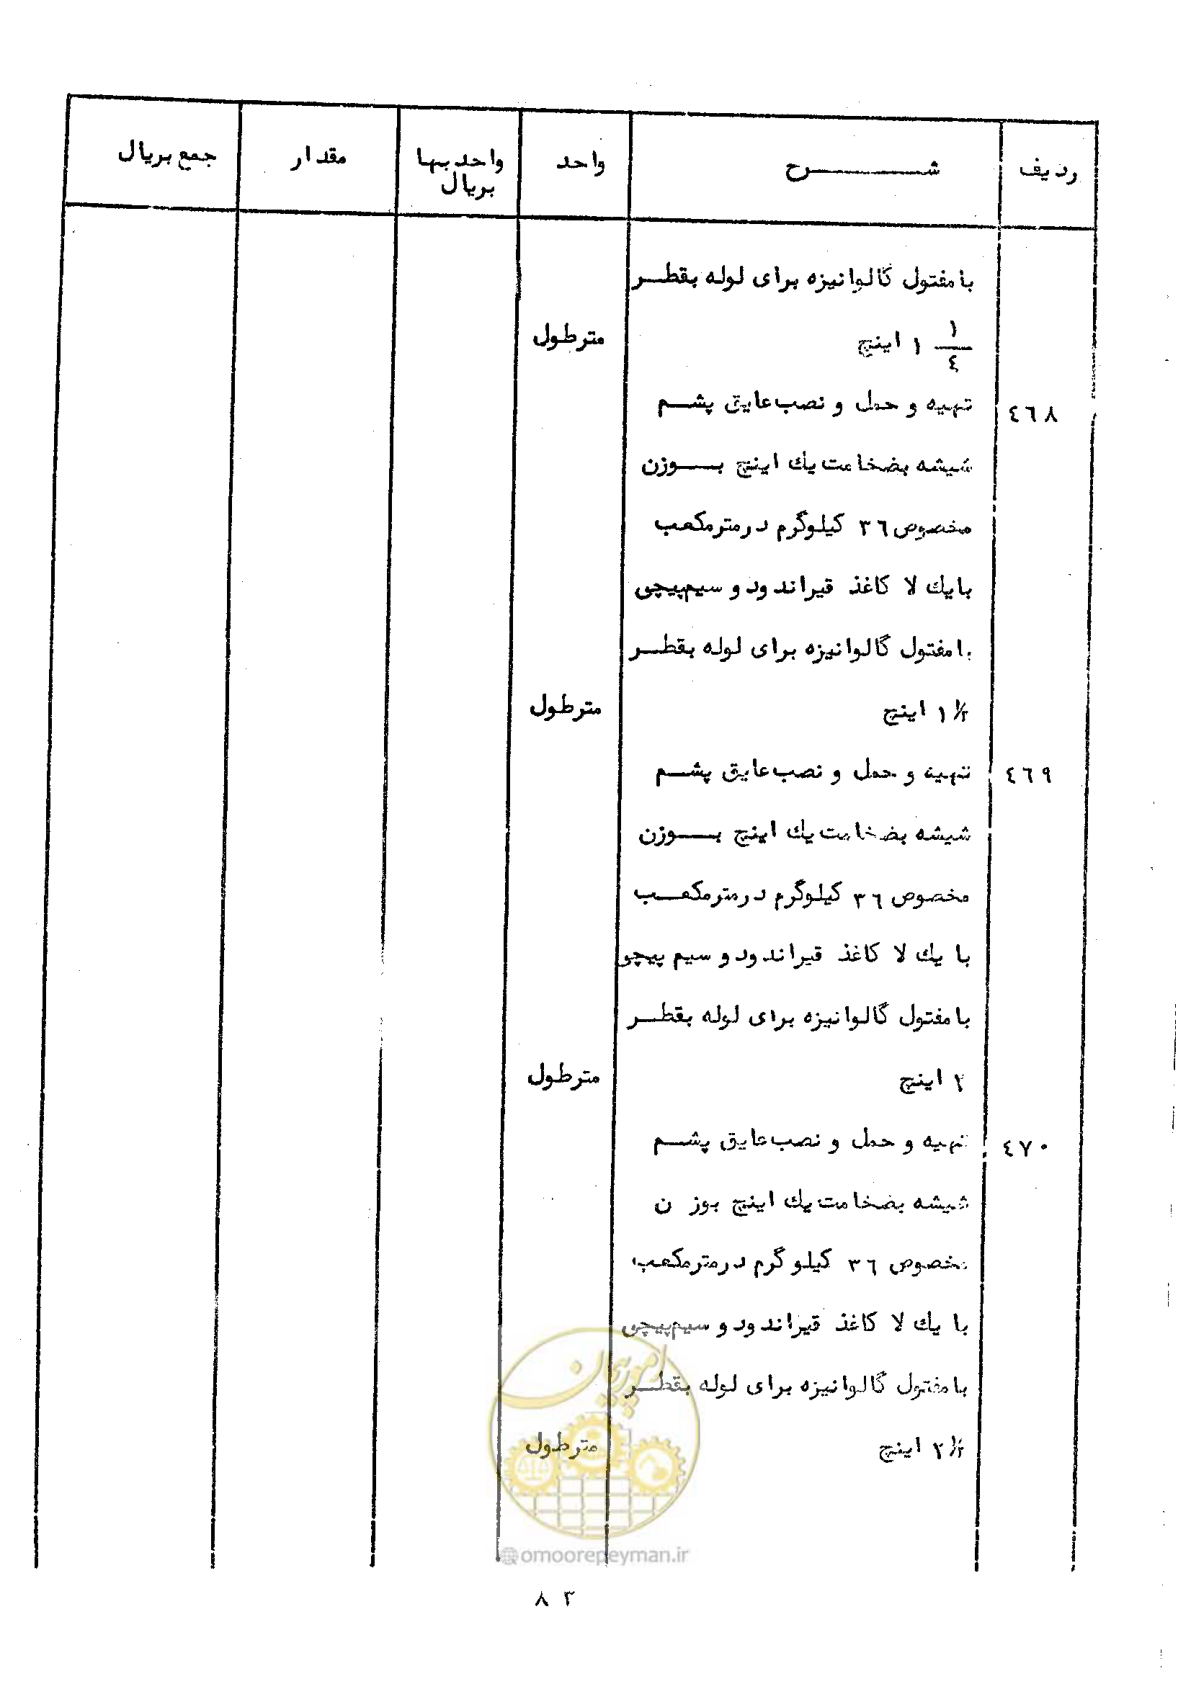 ردیف شـــــــرح واحد واحد بها بریال مقدار جمع بریال
با مفتول گالوانیزه برای لوله بقطـــر
۱ ۱/٤ اینچ مترطول
٤٦٨ تهیه و حمل و نصب عایق پشـــم
شیشه بضخامت یك اینچ بـــوزن
مخصوص ۳٦ کیلوگرم درمترمکعب
با یك لا کاغذ قیراندود و سیم‌پیچی
با مفتول گالوانیزه برای لوله بقطـــر
۱ ۱/۲ اینچ مترطول
٤٦۹ تهیه و حمل و نصب عایق پشـــم
شیشه بضخامت یك اینچ بـــوزن
مخصوص ۳٦ کیلوگرم درمترمکعـــب
با یك لا کاغذ قیراندود و سیم پیچی
با مفتول گالوانیزه برای لوله بقطـــر
۲ اینچ مترطول
٤۷۰ تهیه و حمل و نصب عایق پشـــم
شیشه بضخامت یك اینچ بوز ن
مخصوص ۳٦ کیلو گرم درمترمکعب
با یك لا کاغذ قیراندود و سیم‌پیچی
با مفتول گالوانیزه برای لوله بقطـــر
۲ ۱/۲ اینچ مترطول
امور پیمان
@omoorepeyman.ir
۸۳